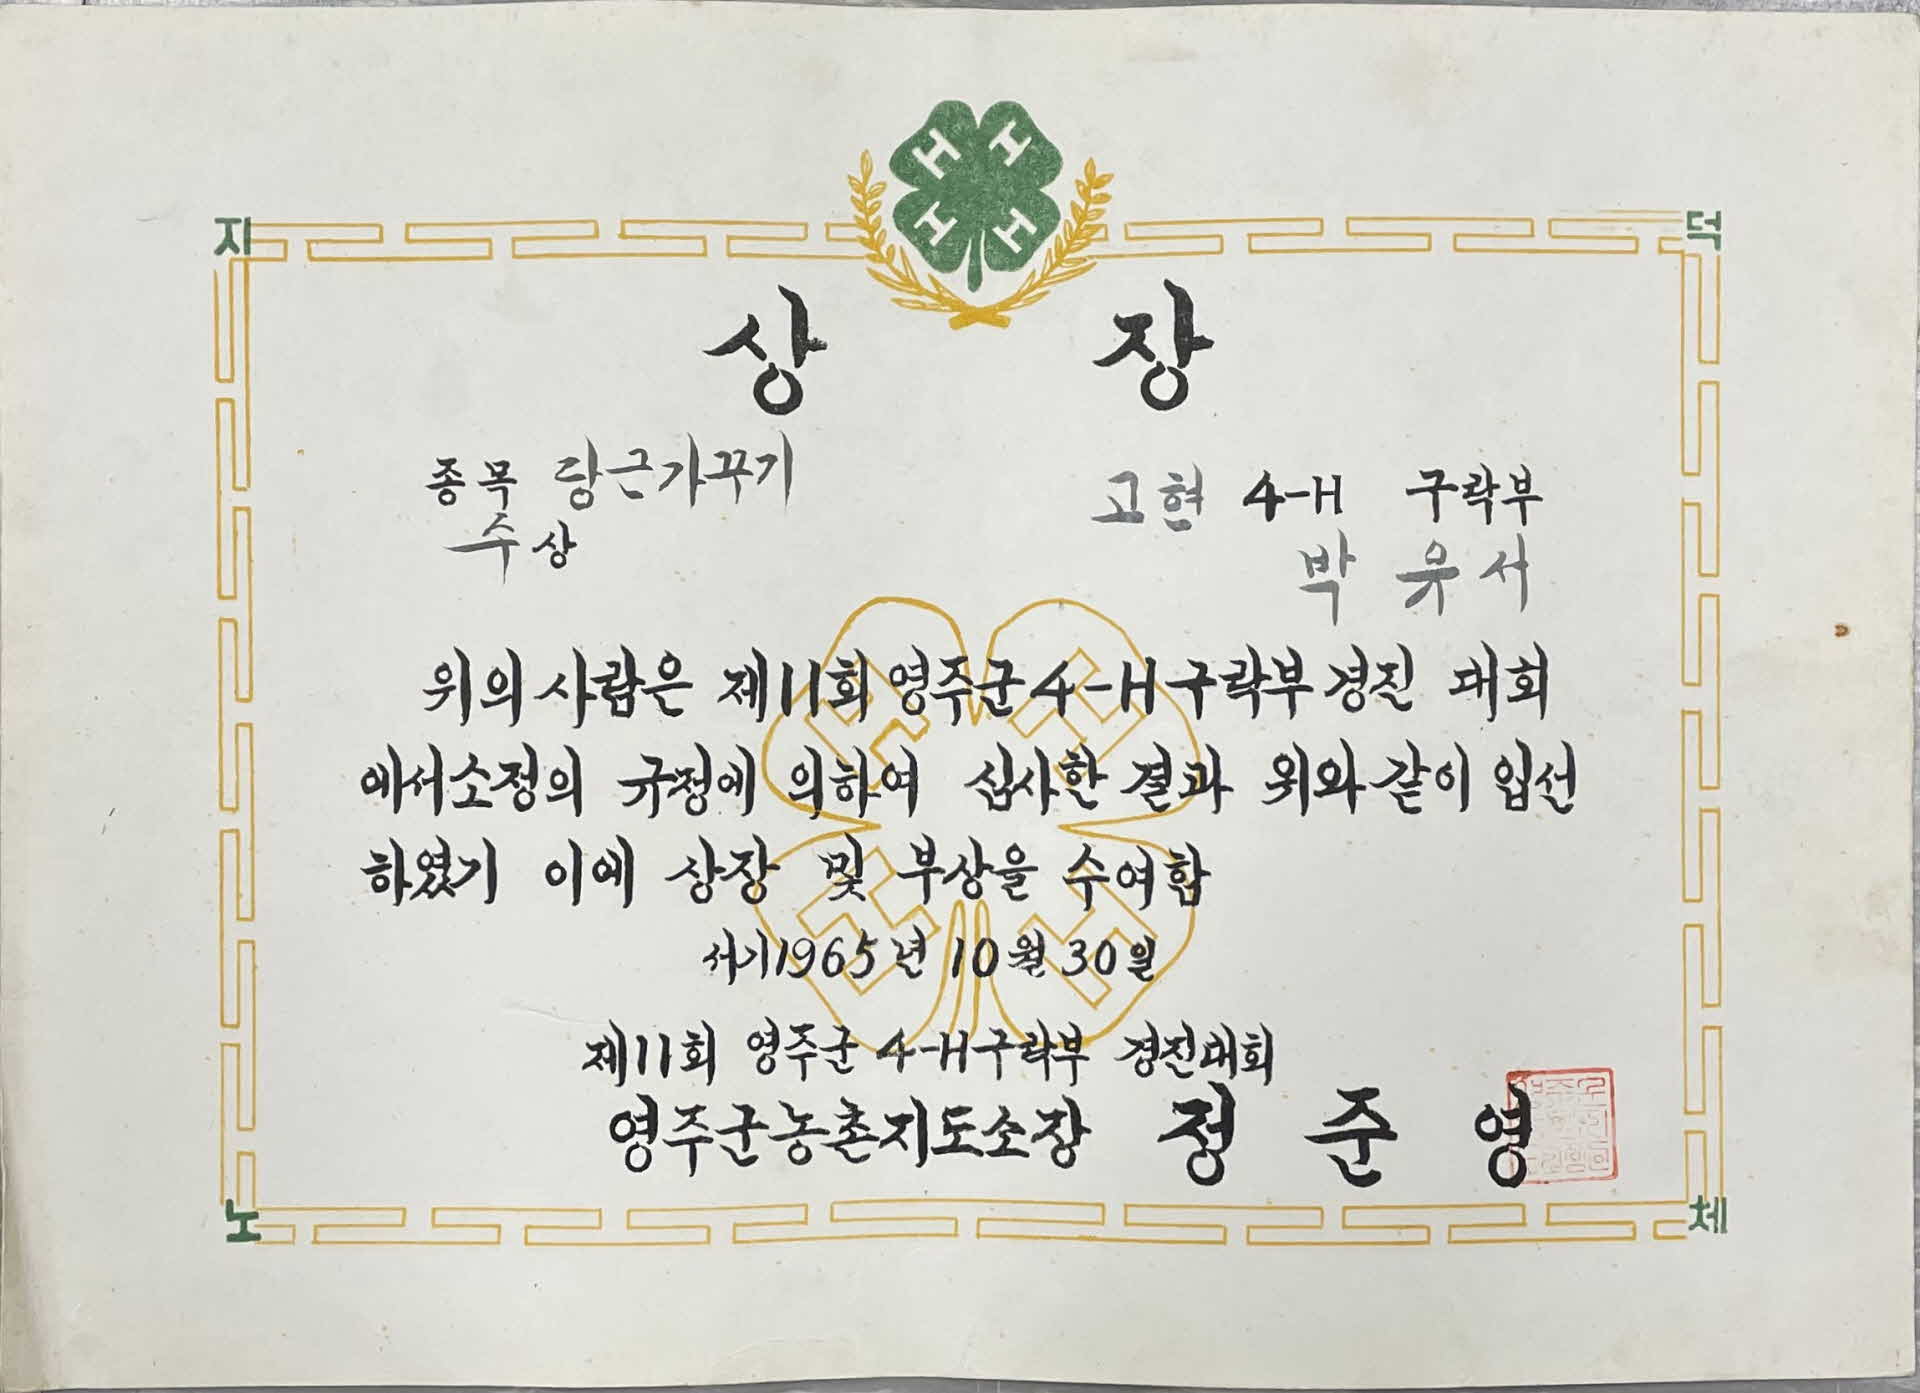 H H
H H
지 덕
상 장
종목 당근가꾸기
수상
고현 4-H 구락부
박유서
위의 사람은 제11회 영주군 4-H 구락부 경진 대회
에서 소정의 규정에 의하여 심사한 결과 위와 같이 입선
하였기 이에 상장 및 부상을 수여함
서기 1965년 10월 30일
제11회 영주군 4-H 구락부 경진대회
영주군농촌지도소장 정준영
노 체